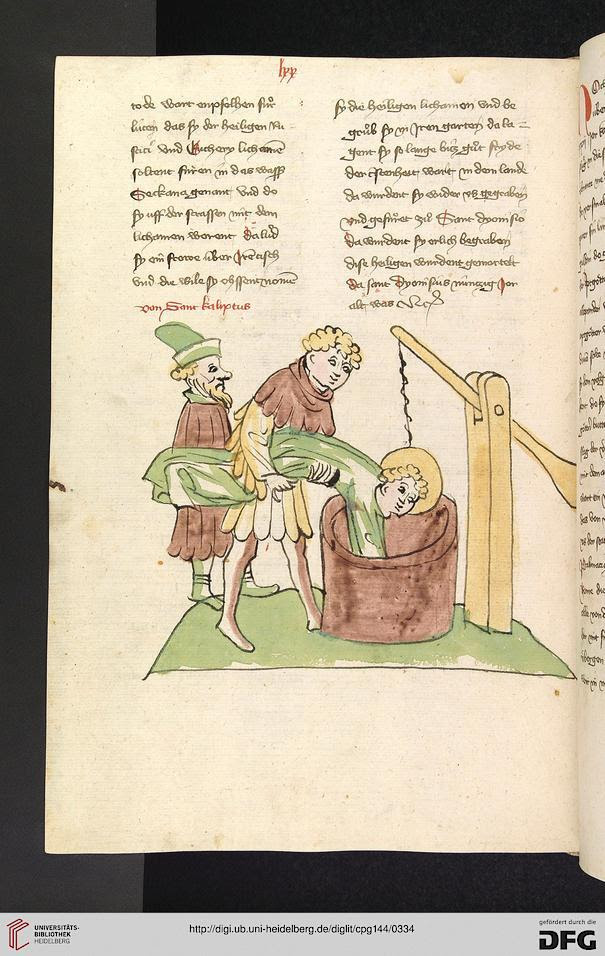 lxx
tode wart enpfolhen für
lúten das sy der heiligen Ru-
stici vnd Euchery lichamē
soltent füren in das wass
Seckana genant vnd do
sy vff der strassen mit dem
lichamen worent Da lud
sy ein frowe über Irē tisch
vnd die wile sy ossent nome
von Sant kalixtus
sy die heiligen lichamen vnd be
grůb sy in Iren garten da la-
gent sy so lange bitz gůt fryde
der cristenheit wart in dem lande
da wurdent sy wider vs gegraben
vnd gefůret zů Sant dyonisio
da wurdent sy erlich begraben
dise heiligen wurdent gemartelt
da sant Dyonisius nunzig Jor
alt was
UNIVERSITÄTS-
BIBLIOTHEK
HEIDELBERG
http://digi.ub.uni-heidelberg.de/diglit/cpg144/0334
gefördert durch die
DFG